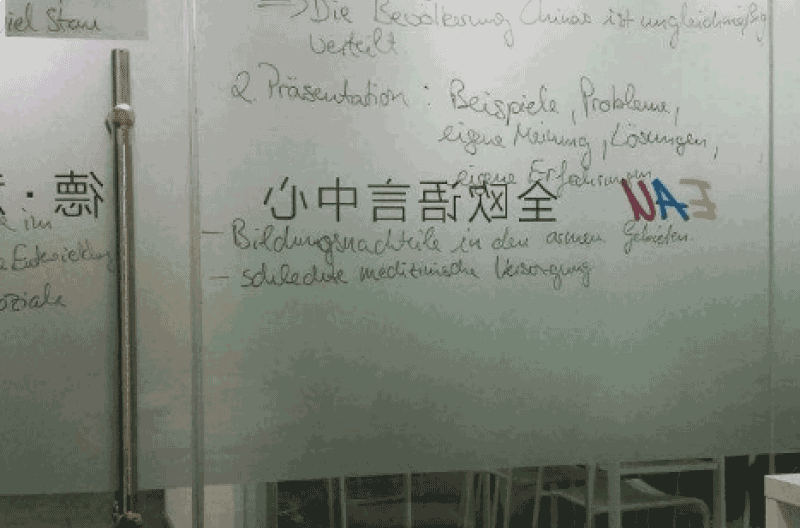 iel Stau
=> Die Bevölkerung Chinas ist ungleichmäßig
verteilt
2. Präsentation : Beispiele, Probleme,
eigene Meinung, Lösungen,
eigene Erfahrungen
德 ·
全欧语言中心
EAU
im
Entwicklung
oziale
- Bildungsnachteile in den armen Gebieten.
- schlechte medizinische Versorgung